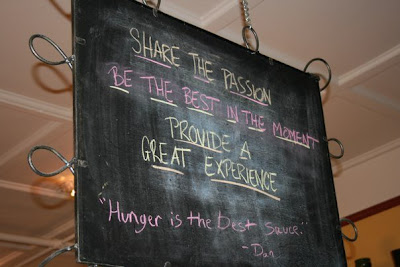 SHARE THE PASSION
BE THE BEST IN THE MOMENT
PROVIDE A
GREAT EXPERIENCE
"Hunger is the best sauce."
-Dan